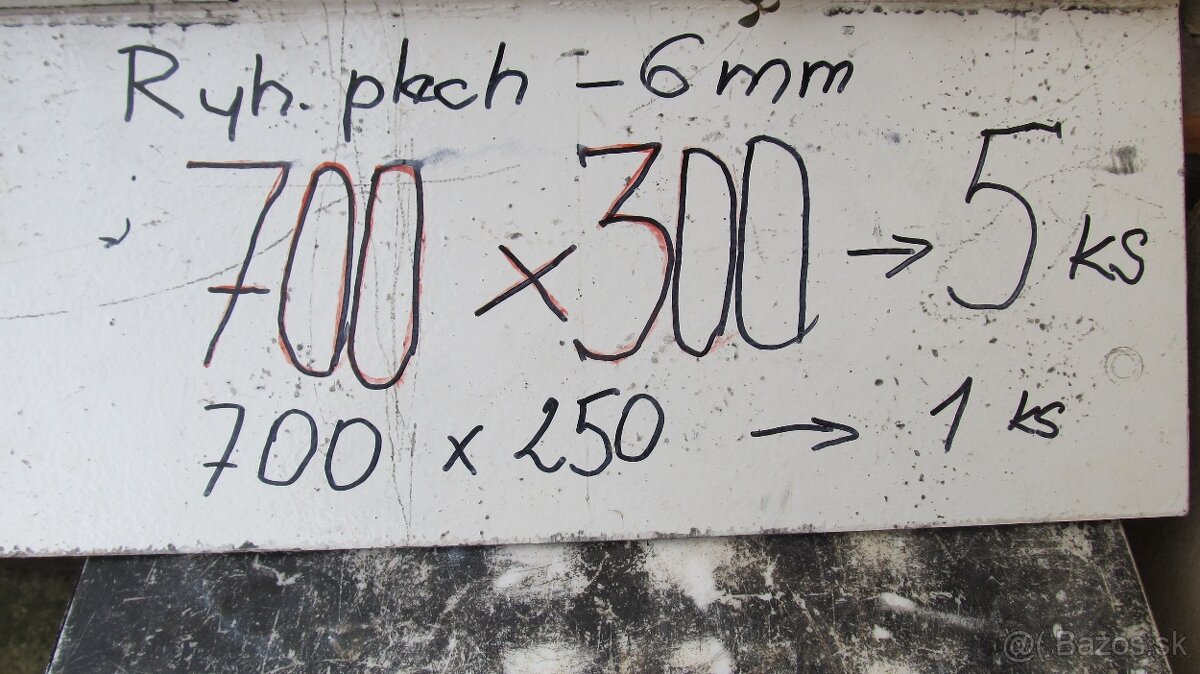 Ryh. plech - 6 mm
700 x 300 → 5 ks
700 x 250 → 1 ks
@( Bazos.sk